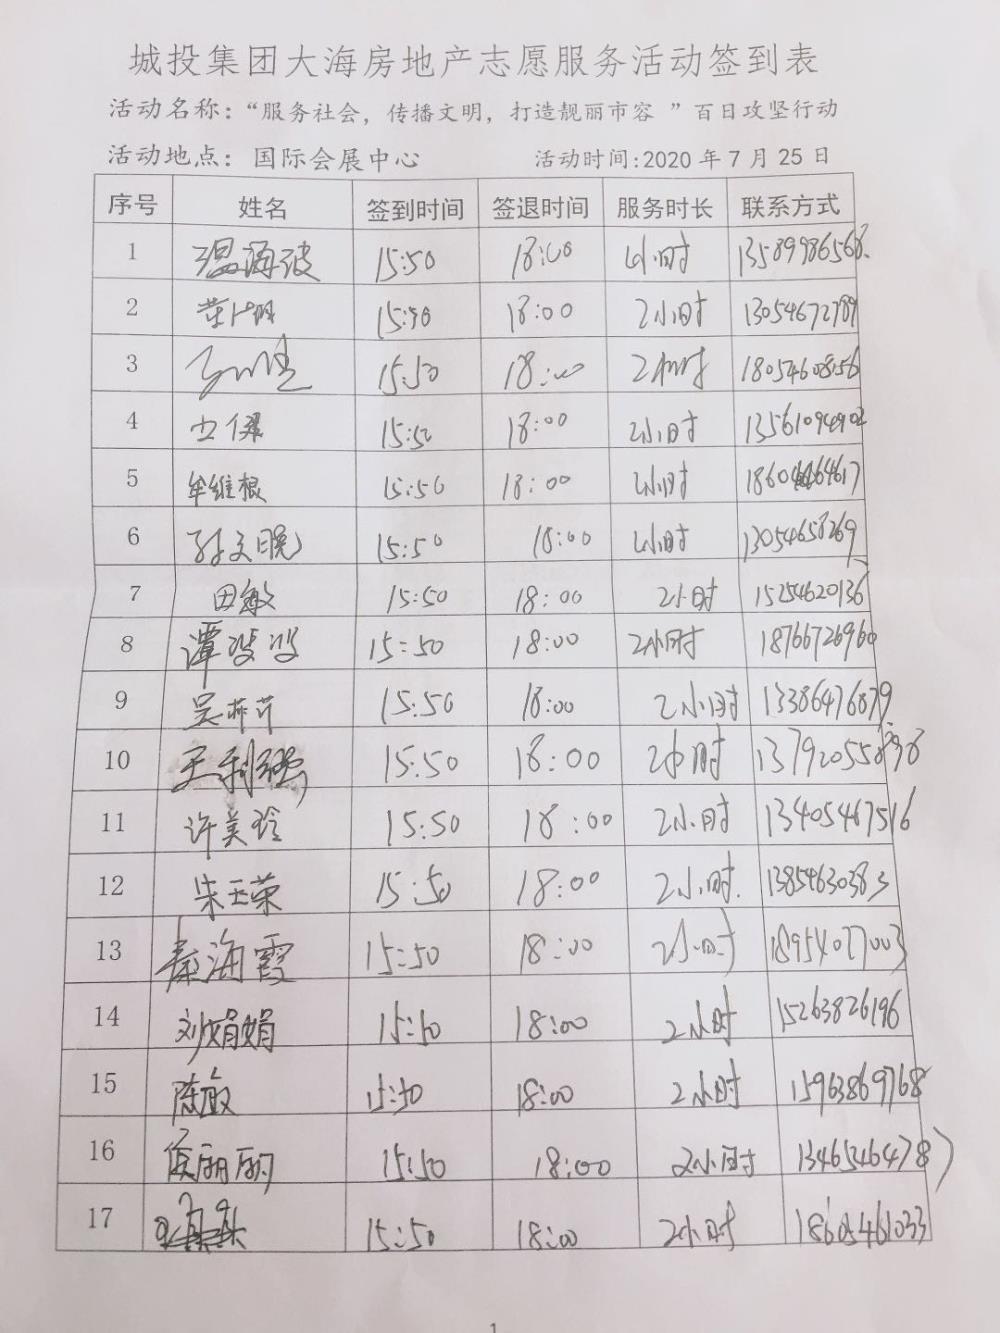 城投集团大海房地产志愿服务活动签到表
活动名称：“服务社会，传播文明，打造靓丽市容 ”百日攻坚行动
活动地点：国际会展中心 活动时间:2020 年 7 月 25 日
序号 姓名 签到时间 签退时间 服务时长 联系方式
1 温海波 15:50 18:00 2小时 13589986568
2 15:50 18:00 2小时 13054672789
3 15:50 18:00 2小时 18054608156
4 15:50 18:00 2小时 13561094902
5 牟维根 15:50 18:00 2小时
6 孙文晓 15:50 18:00 2小时 13054658269
7 田敏 15:50 18:00 2小时 15254620136
8 谭婷婷 15:50 18:00 2小时 18766726960
9 15:50 18:00 2小时 13386476879
10 王利强 15:50 18:00 2小时
11 许美玲 15:50 18:00 2小时 13405467516
12 朱玉荣 15:50 18:00 2小时 13854630383
13 秦海霞 15:50 18:00 2小时 18954077003
14 刘娟娟 15:50 18:00 2小时 15263826196
15 陈敏 15:50 18:00 2小时 15963869768
16 侯丽丽 15:50 18:00 2小时 13465464787
17 15:50 18:00 2小时 18605461033
1